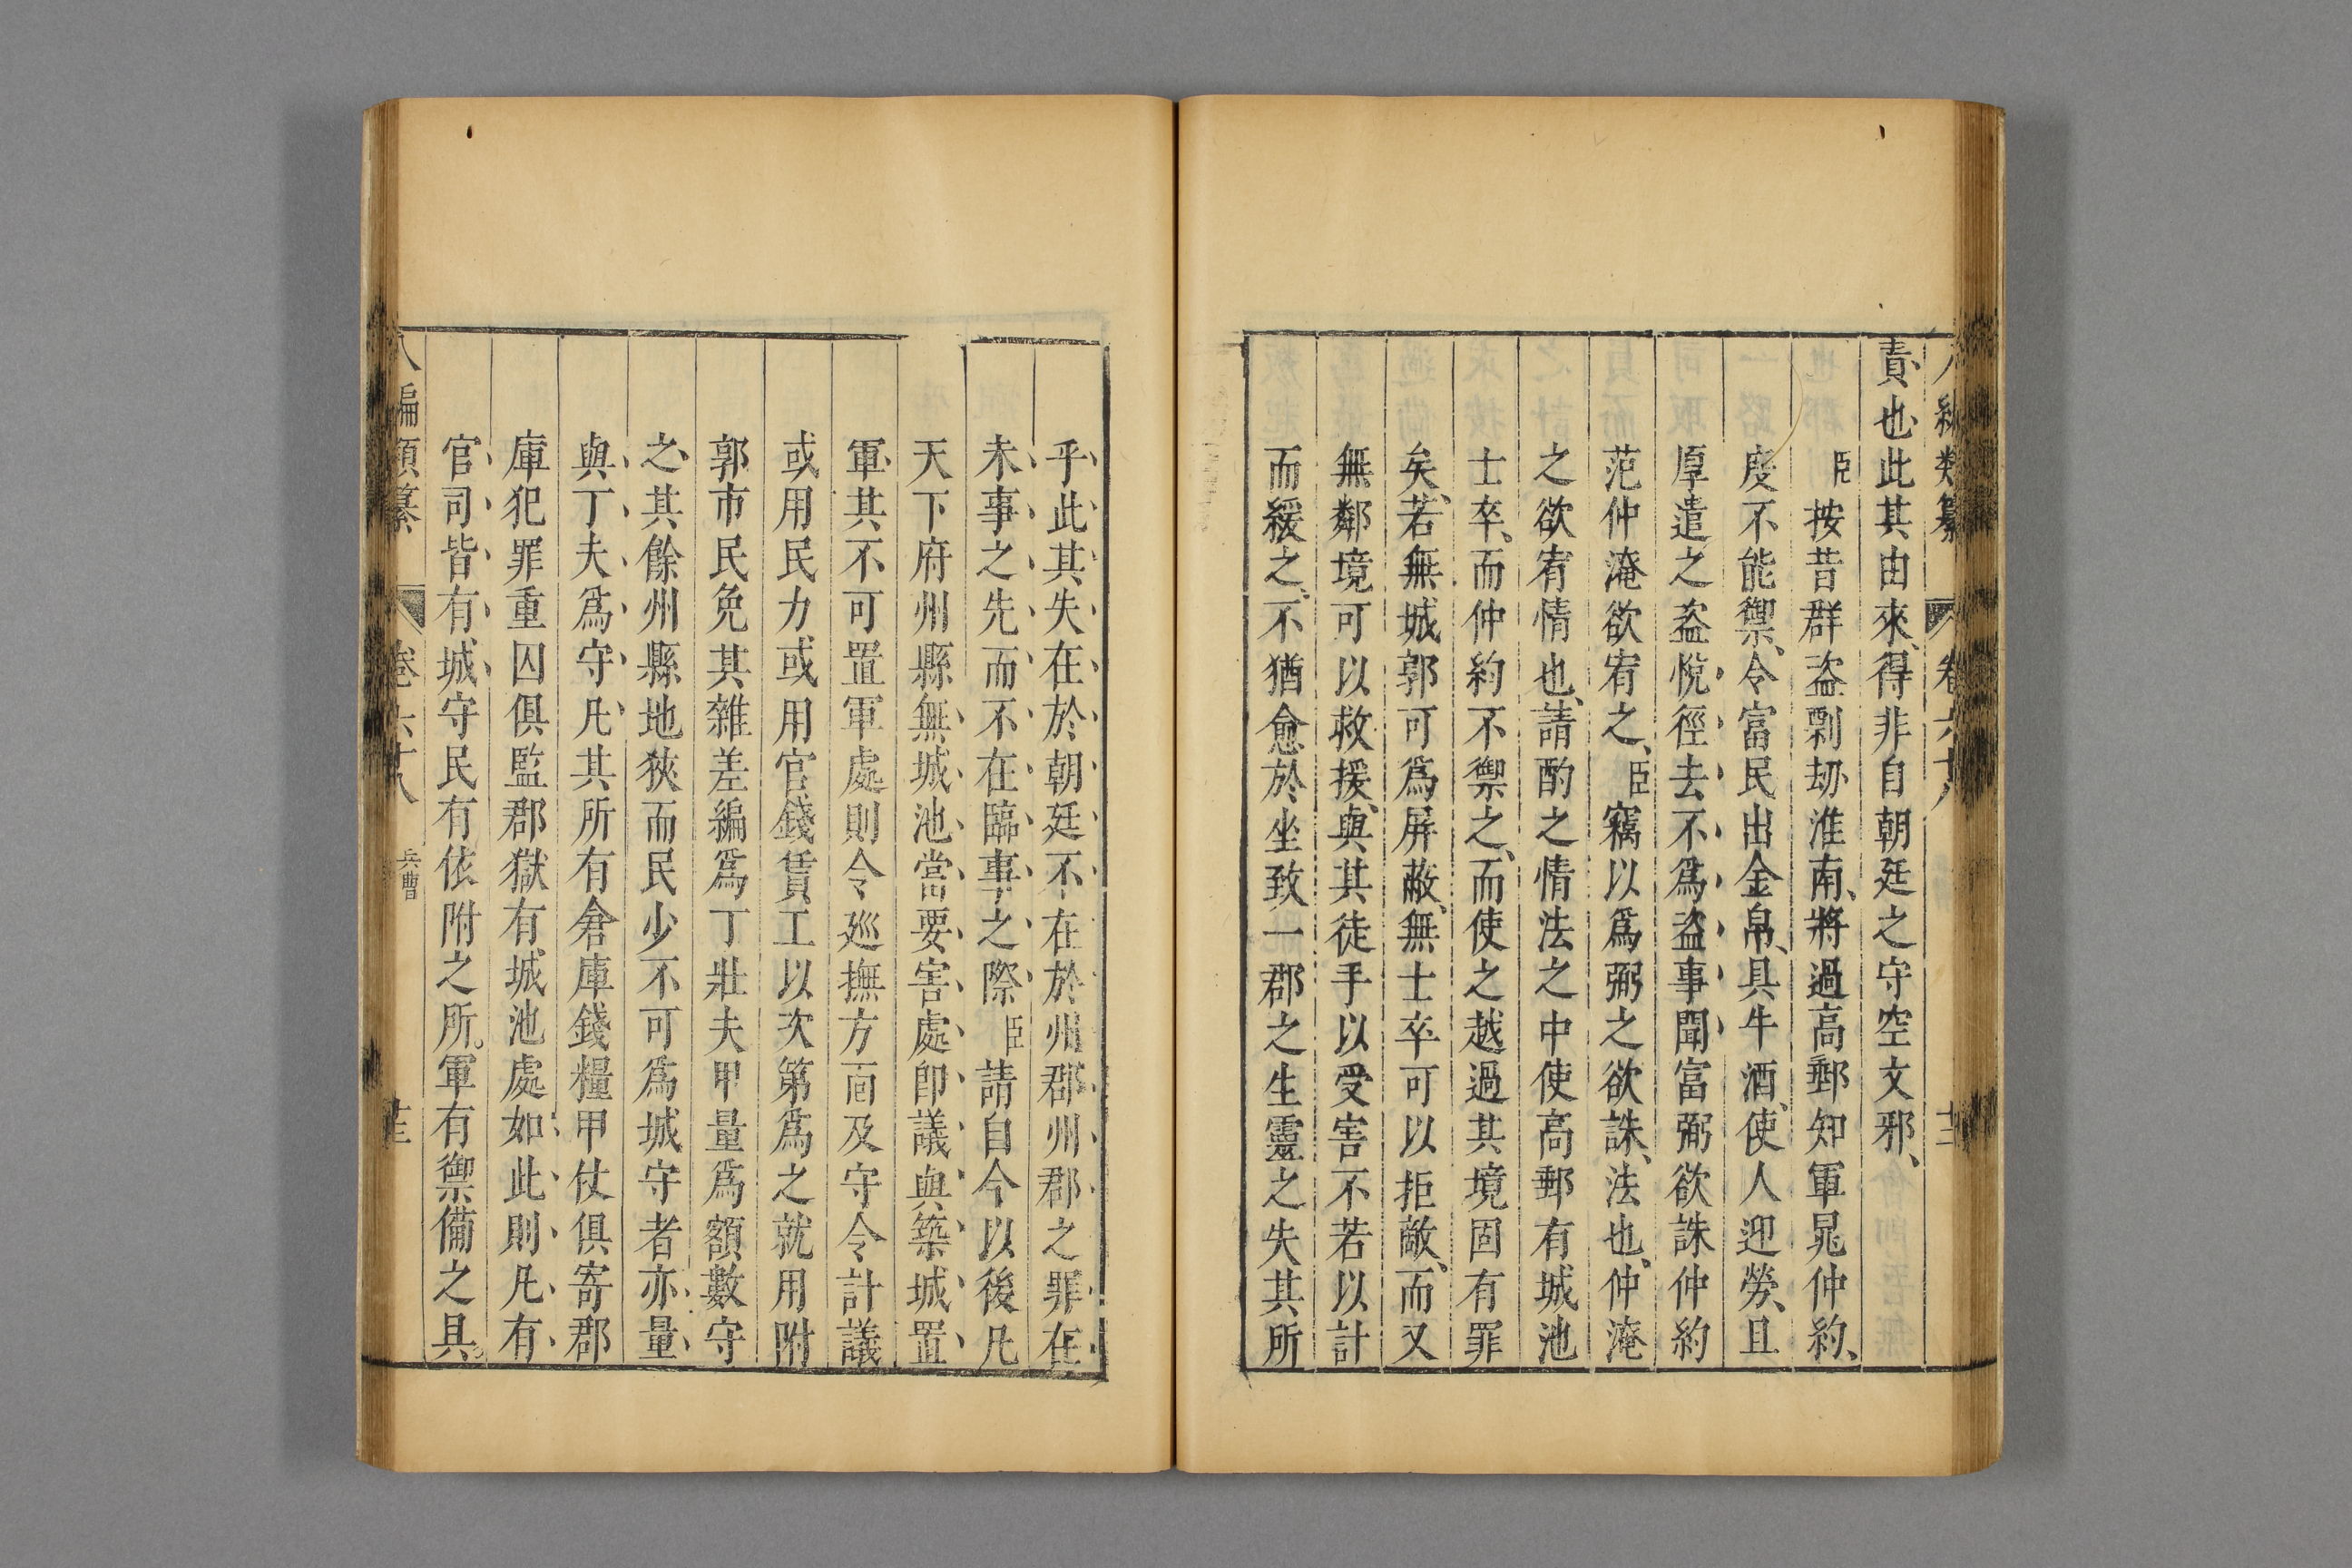 編類纂 卷六十八 十二
責也此其由來、得非自朝廷之守空文邪、
臣按昔群盗剽刼淮南、將過高郵知軍晁仲約、
度不能禦、令富民出金帛、具牛酒、使人迎勞、且
厚遣之盗悅徑去不爲盗事聞富弼欲誅仲約
范仲淹欲宥之、臣竊以爲弼之欲誅、法也、仲淹
之欲宥情也、請酌之情法之中使高郵有城池
士卒、而仲約不禦之、而使之越過其境固有罪
矣、若無城郭可爲屏蔽、無士卒可以拒敵、而又
無鄰境可以救援、與其徒手以受害不若以計
而緩之、不猶愈於坐致一郡之生靈之失其所
乎此其失在於朝廷不在於州郡州郡之罪在
未事之先而不在臨事之際臣請自今以後凡
天下府州縣無城池當要害處卽議與築城置
軍其不可置軍處則令廵撫方面及守令計議
或用民力或用官錢賃工以次第爲之就用附
郭市民免其雜差編爲丁壯夫甲量爲額數守
之其餘州縣地狹而民少不可爲城守者亦量
與丁夫爲守凡其所有倉庫錢糧甲仗俱寄郡
庫犯罪重囚俱監郡獄有城池處如此則凡有
官司皆有城守民有依附之所。軍有禦備之具
八編類纂 卷六十八 兵曹 十三